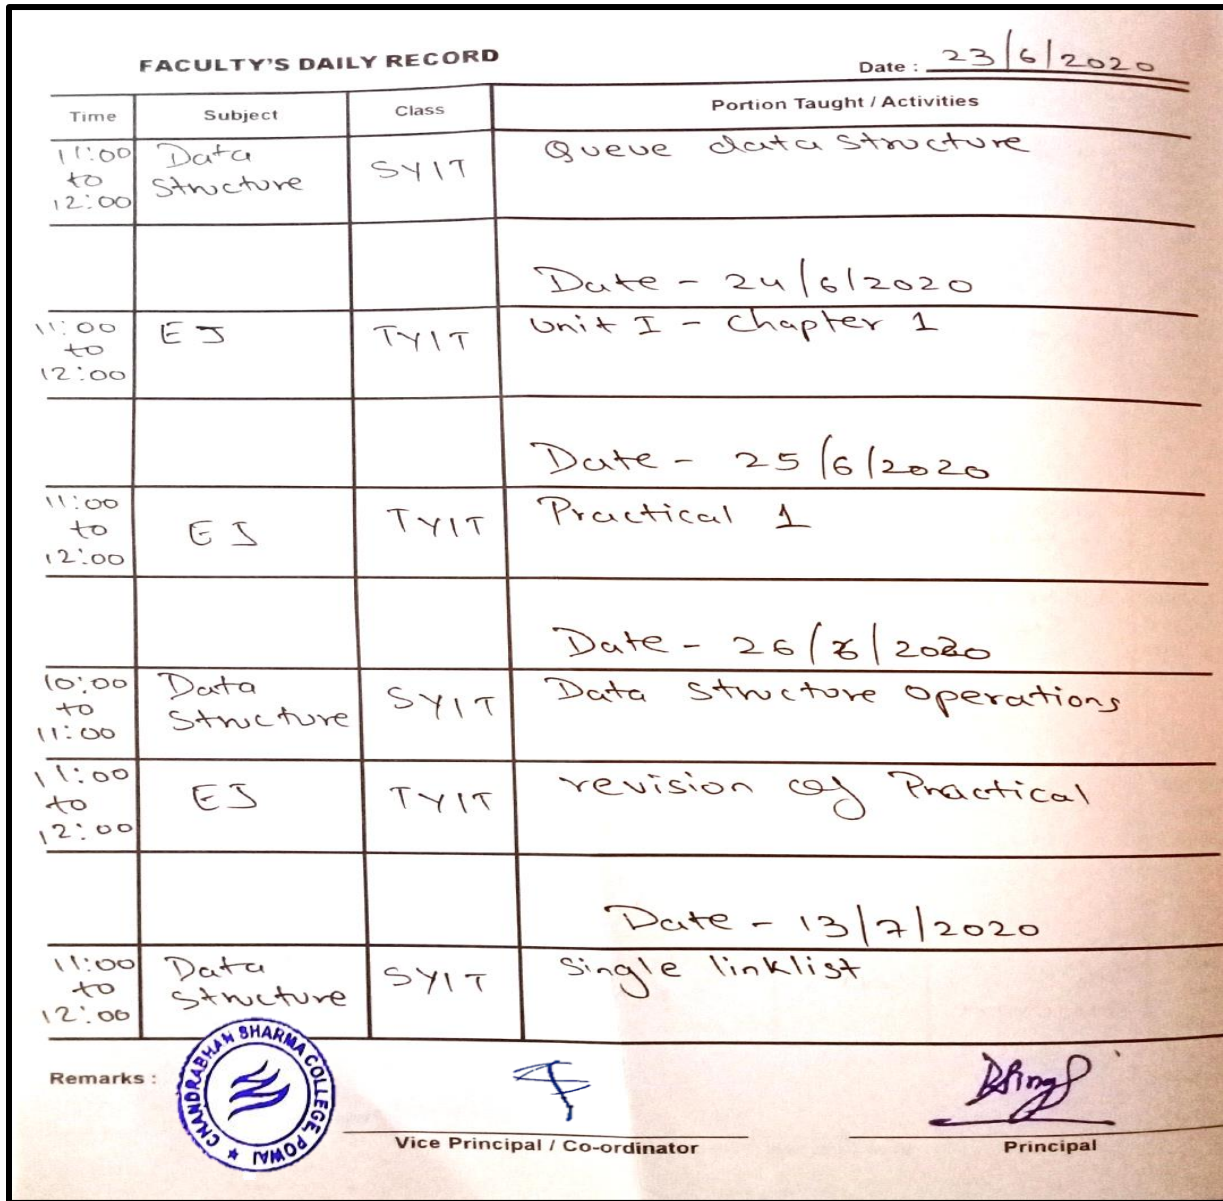 FACULTY'S DAILY RECORD
Date : 23/6/2020
Time Subject Class Portion Taught / Activities
11:00 to 12:00 Data Structure SYIT Queue data structure
Date - 24/6/2020
11:00 to 12:00 EJ TYIT Unit I - Chapter 1
Date - 25/6/2020
11:00 to 12:00 EJ TYIT Practical 1
Date - 26/6/2020
10:00 to 11:00 Data Structure SYIT Data structure operations
11:00 to 12:00 EJ TYIT revision of Practical
Date - 13/7/2020
11:00 to 12:00 Data Structure SYIT Single linklist
Remarks :
CHANDRABHAN SHARMA COLLEGE, POWAI
Vice Principal / Co-ordinator
Principal